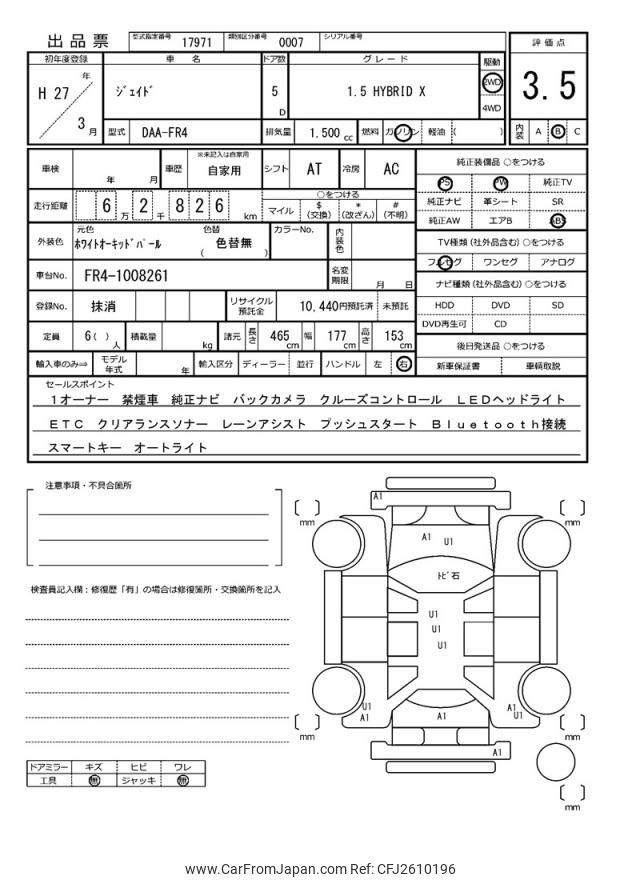 出品票 型式指定番号 17971 類別区分番号 0007 シリアル番号
初年度登録 車名 ドア数 グレード 駆動 評価点
H 27 年 3 月 ジェイド 5 D 1.5 HYBRID X 2WD 4WD 3.5
型式 DAA-FR4 排気量 1.500 cc 燃料 ガソリン 軽油 ( ) 内装 A B C
車検 年 月 車歴 ※未記入は自家用 自家用 シフト AT 冷房 AC
走行距離 6 万 2 千 8 2 6 km ○をつける
マイル $ (交換) * (改ざん) # (不明)
外装色 元色 ホワイトオーキッドパール 色替 ( 色替無 ) カラーNo. 内装色
車台No. FR4-1008261 名変期限 月 日
登録No. 抹消 リサイクル預託金 10,440円預託済 未預託
定員 6( ) 人 積載量 kg 諸元 長さ 465 cm 幅 177 cm 高さ 153 cm
輸入車のみ⇒ モデル年式 年 輸入区分 ディーラー 並行 ハンドル 左 右
純正装備品 ○をつける
PS PW 純正TV
純正ナビ 革シート SR
純正AW エアB ABS
TV種類 (社外品含む) ○をつける
フルセグ ワンセグ アナログ
ナビ種類 (社外品含む) ○をつける
HDD DVD SD
DVD再生可 CD
後日発送品 ○をつける
新車保証書 車輌取説
セールスポイント
1オーナー 禁煙車 純正ナビ バックカメラ クルーズコントロール LEDヘッドライト
ETC クリアランスソナー レーンアシスト プッシュスタート Bluetooth接続
スマートキー オートライト
注意事項・不具合箇所
検査員記入欄：修復歴「有」の場合は修復箇所・交換箇所を記入
ドアミラー キズ ヒビ ワレ
工具 無 ジャッキ 無
A1
mm mm
A1 U1
トビ石
U1
U1
U1
U1 A1 A1 A1 U1
mm mm
A1
mm
www.CarFromJapan.com Ref: CFJ2610196